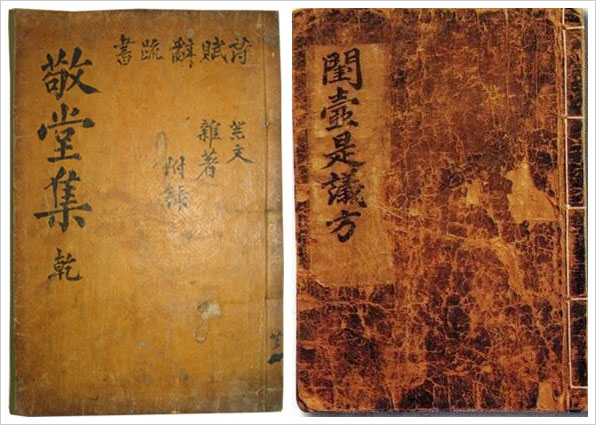 敬堂集 乾
詩賦辭疏書
祭文
雜著
附錄
閨壼是議方